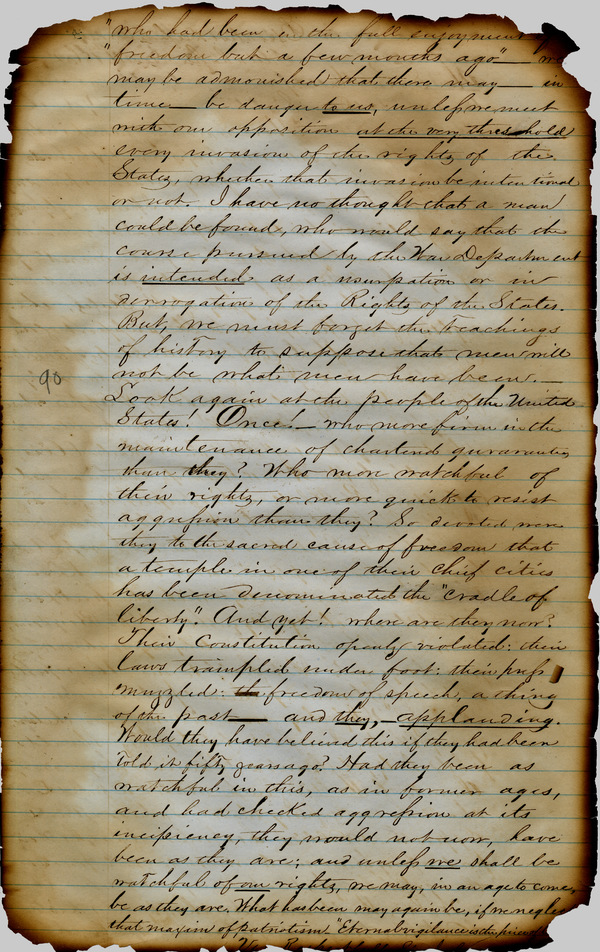 "who had been in the full enjoyment of
"freedom but a few months ago" — we
may be admonished that there may — in
time — be danger to us, unless we meet
with our opposition at the very threshold
every invasion of the rights of the
States, whether that invasion be intentional
or not. I have no thought that a man
could be found, who would say that the
course pursued by the War Department
is intended as a usurpation or in
derogation of the Rights of the States.
But, we must forget the teachings
of history to suppose that men will
not be what men have been. —
90
Look again at the people of the United
States! Once! — who more firm in the
maintenance of chartered guaranties
than they? Who more watchful of
their rights, or more quick to resist
aggression than they? So devoted were
they to the sacred cause of freedom that
a temple in one of their chief cities
has been denominated the "cradle of
liberty". And yet! where are they now?
Their Constitution openly violated: their
laws trampled under foot: their press
muzzled: the freedom of speech, a thing
of the past — and they, — applauding.
Would they have believed this if they had been
told it fifty years ago? Had they been as
watchful in this, as in former ages,
and had checked aggression at its
incipiency, they would not now, have
been as they are; and unless we shall be
watchful of our rights, we may, in an age to come,
be as they are. What has been may again be, if we neglect
that maxim of patriotism "Eternal vigilance is the price of